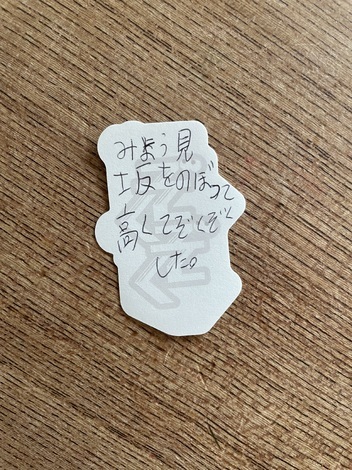 みょう見
坂をのぼって
高くてぞくぞく
した。